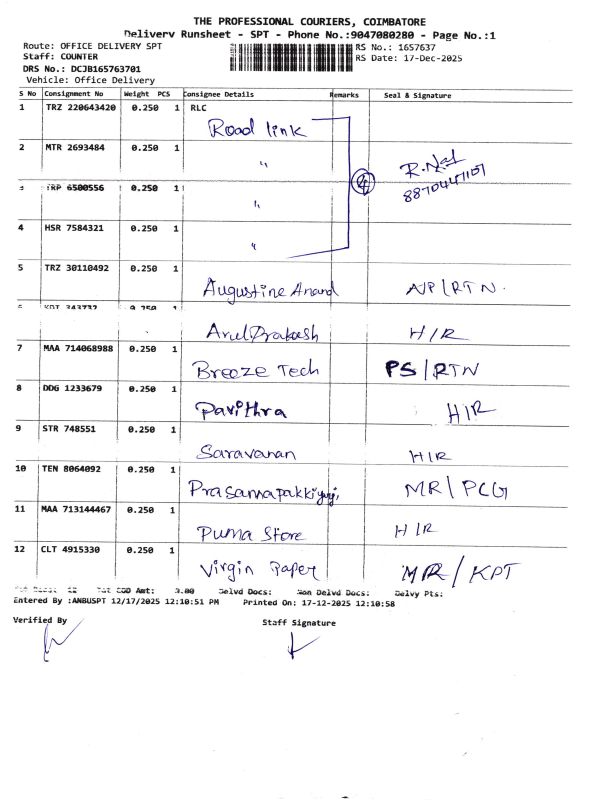 THE PROFESSIONAL COURIERS, COIMBATORE
Delivery Runsheet - SPT - Phone No.:9047080280 - Page No.:1
Route: OFFICE DELIVERY SPT
Staff: COUNTER
DRS No.: DCJB165763701
Vehicle: Office Delivery
RS No.: 1657637
RS Date: 17-Dec-2025
S No Consignment No Weight PCS Consignee Details Remarks Seal & Signature
1 TRZ 220643420 0.250 1 RLC
Road link
2 MTR 2693484 0.250 1
"
4
8870447107
3 TRP 6500556 0.250 1
"
4 HSR 7584321 0.250 1
"
5 TRZ 30110492 0.250 1
Augustine Anand A/P/RTN.
6 KDT 343737 0.250 1
Arul Prakash H/R
7 MAA 714068988 0.250 1
Breeze Tech PS/RTN
8 DDG 1233679 0.250 1
Pavithra H/R
9 STR 748551 0.250 1
Saravanan H/R
10 TEN 8064092 0.250 1
MR/PCG
11 MAA 713144467 0.250 1
Puma Store H/R
12 CLT 4915330 0.250 1
Virgin Paper MR/KPT
Tot Docs: 12 Tot COD Amt: 0.00 Delvd Docs: Non Delvd Docs: Delvy Pts:
Entered By :ANBUSPT 12/17/2025 12:10:51 PM Printed On: 17-12-2025 12:10:58
Verified By Staff Signature